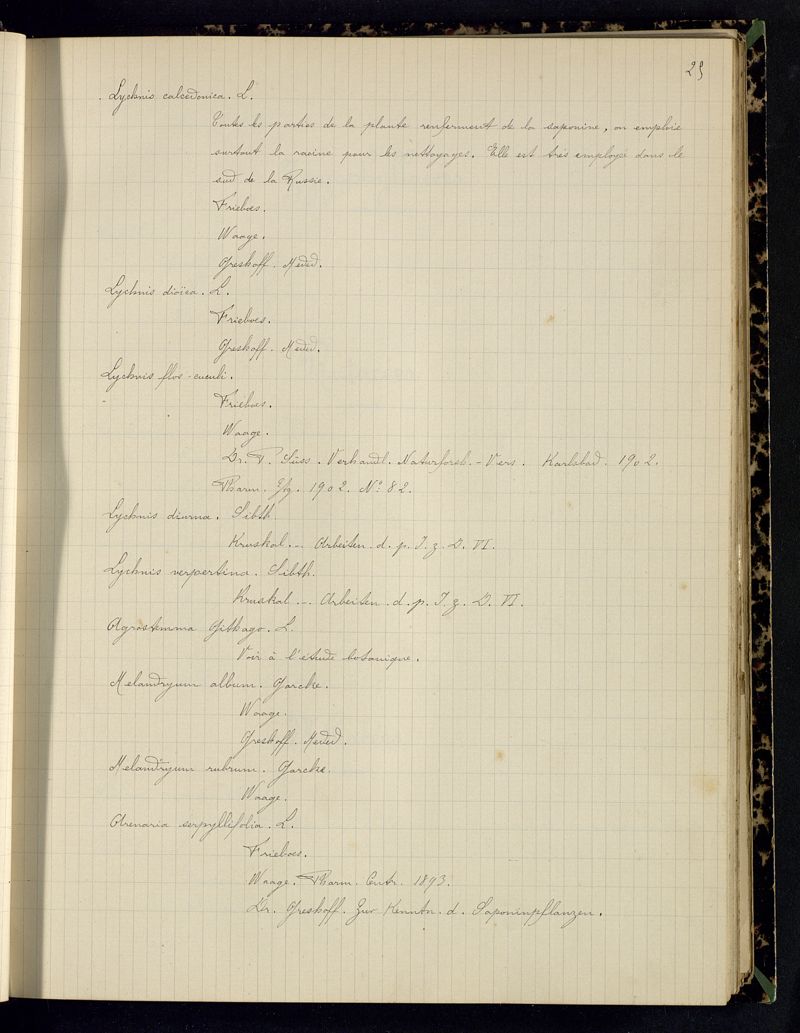 25
Lychnis calcedonica. L.
Toutes les parties de la plante renferment de la saponine, on emploie
surtout la racine pour les nettoyages. Elle est très employée dans le
sud de la Russie.
Frieboes.
Waage.
Greshoff. Meded.
Lychnis dioïca. L.
Frieboes.
Greshoff. Meded.
Lychnis flos-cuculi.
Frieboes.
Waage.
Dr. P. Süss. Verhandl. Naturforsch.-Vers. Karlsbad. 1902.
Pharm. Ztg. 1902. No 82.
Lychnis diurna. Sibth.
Kruskal. - Arbeiten. d. p. I. z. D. VI.
Lychnis verpertina. Sibth.
Kruskal - Arbeiten. d. p. I. z. D. VI.
Agrostemma Githago. L.
Voir à l'étude botanique.
Melandryum album. Garcke.
Waage.
Greshoff. Meded.
Melandryum rubrum. Garcke.
Waage.
Arenaria serpyllifolia. L.
Frieboes.
Waage. Pharm. Centr. 1893.
Dr. Greshoff. Zur Kenntn. d. Saponinpflanzen.